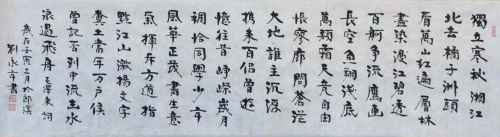 獨立寒秋湘江
北去橘子洲頭
看萬山紅遍層林
盡染漫江碧透
百舸爭流鷹擊
長空魚翔淺底
萬類霜天競自由
悵寥廓問蒼茫
大地誰主沉浮
攜來百侶曾遊
憶往昔崢嶸歲月
稠恰同學少年
風華正茂書生意
氣揮斥方遒指
點江山激揚文字
糞土當年萬戶侯
曾記否到中流擊水
浪遏飛舟 毛澤東詞
歲在壬寅 月於郎溪
劉永 書